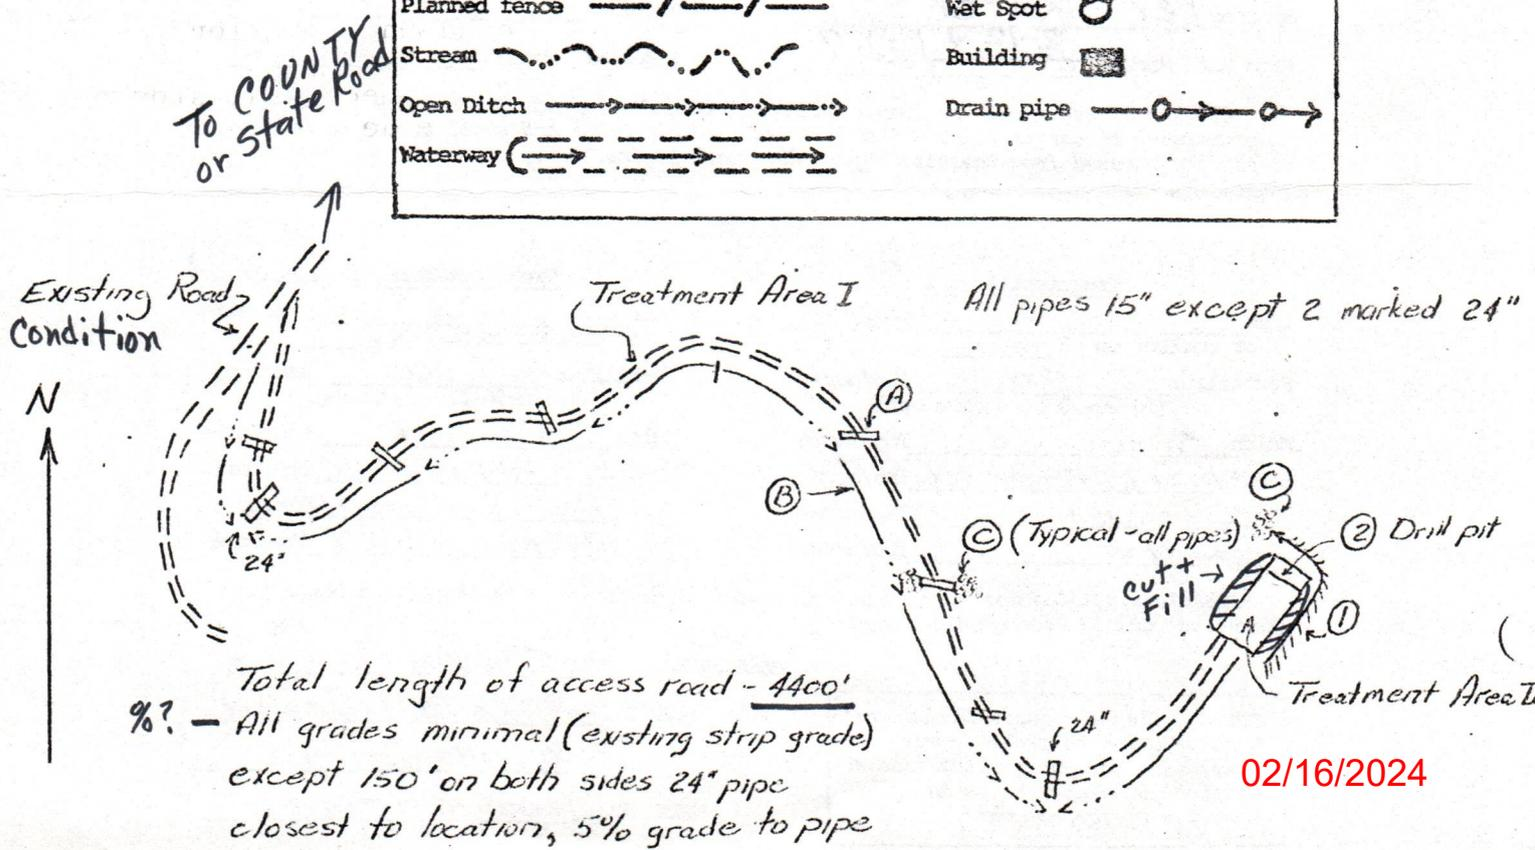 Planned fence
Wet Spot
Stream
Building
Open Ditch
Drain pipe
Waterway
To COUNTY
or State Road
Existing Road
Condition
Treatment Area I
All pipes 15" except 2 marked 24"
N
A
B
C (Typical - all pipes)
C
2 Drill pit
Cut +
Fill
1
A
24"
Treatment Area II
24"
Total length of access road - 4400'
%? - All grades minimal (existing strip grade)
except 150' on both sides 24" pipe
closest to location, 5% grade to pipe
02/16/2024